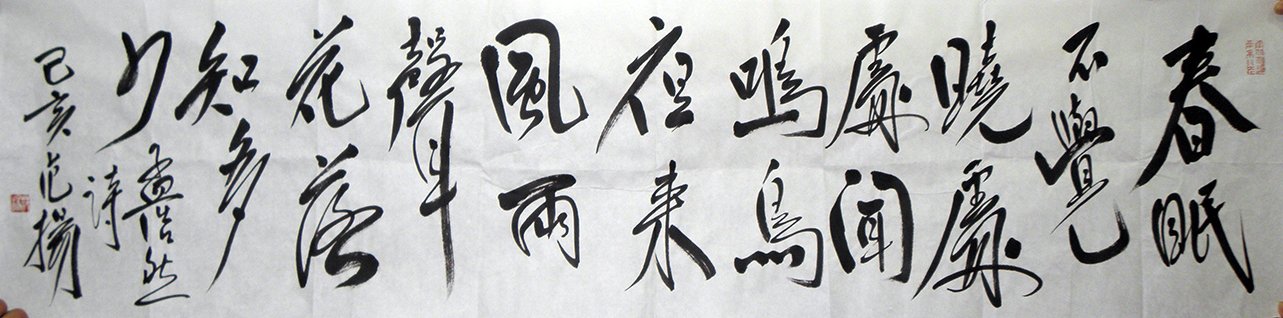 春眠
不覺
曉處
處聞
鳴鳥
夜来
風雨
聲
花落
知多
少 孟浩然
詩
己亥范揚